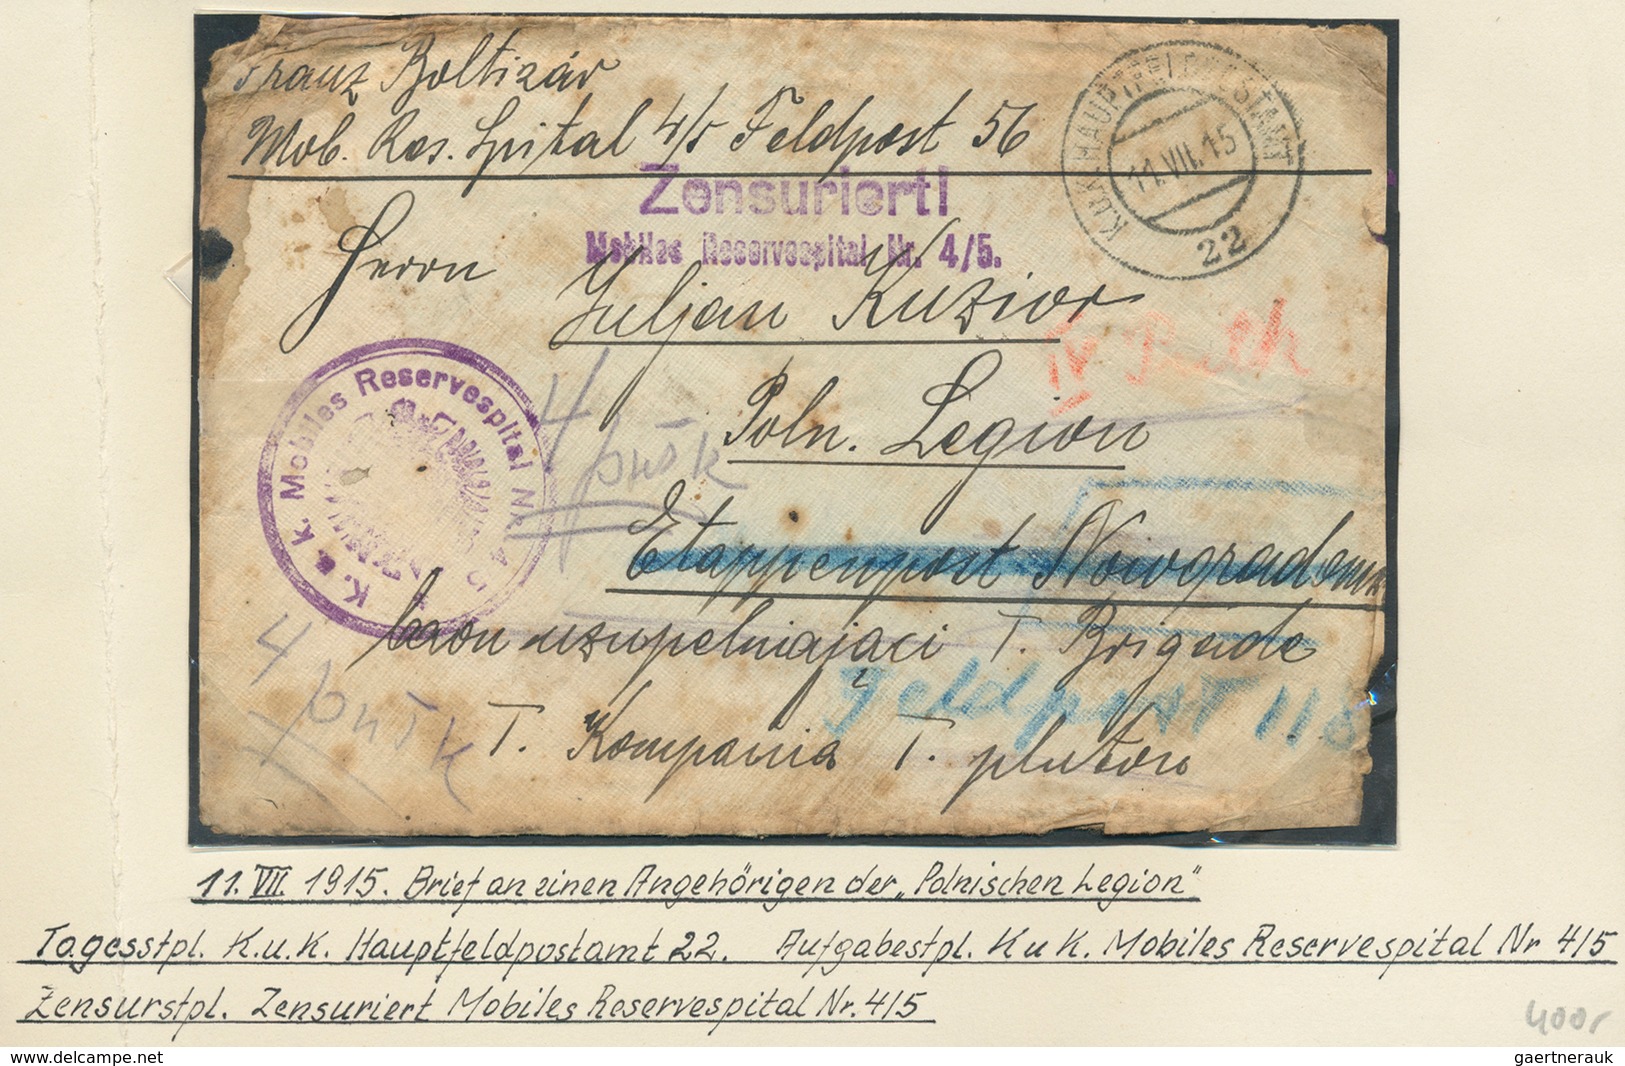 Franz Boltizár
Mob. Res. Spital 4/5 Feldpost 56
K.u.K. HAUPTFELDPOSTAMT
11.VII.15
22
Zensuriert!
Mobiles Reservespital Nr. 4/5.
Herrn
Juljan Kuzior
IV
Poln. Legion
K. u. k. Mobiles Reservespital Nr. 4/5
4
pušk
Etappenpost Noworadomsk
baon uzupełniający I. Brigade
Feldpost 118
4 pušk
I. Kompania I. pluton
11. VII. 1915. Brief an einen Angehörigen der „Polnischen Legion"
Tagesstpl. K.u.K. Hauptfeldpostamt 22. Aufgabestpl. K u K. Mobiles Reservespital Nr 4/5
Zensurstpl. Zensuriert Mobiles Reservespital Nr. 4/5
400,-
gaertnerauk